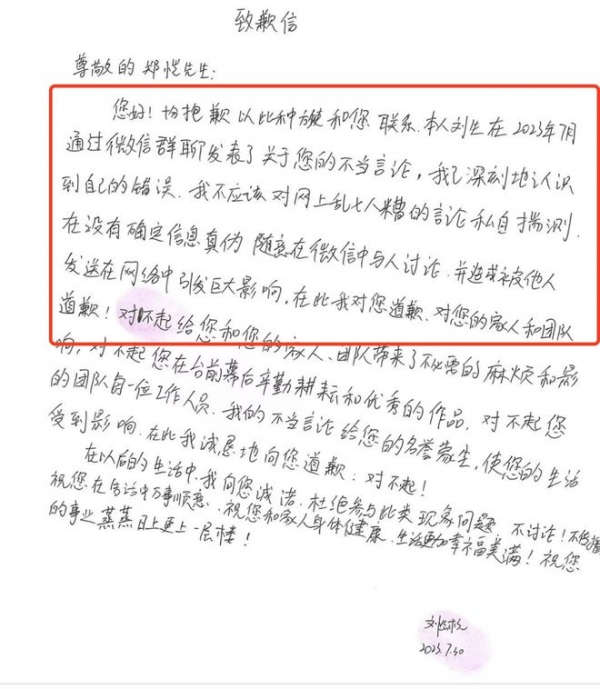 致歉信
尊敬的郑恺先生：
您好！ 抱歉以此种方式和您联系.本人刘生在2023年7月
通过微信群聊发表了关于您的不当言论，我已深刻地认识
到自己的错误.我不应该对网上乱七八糟的言论私自揣测.
在没有确定信息真伪 随意在微信中与人讨论.并造成被他人
发送在网络中引发巨大影响，在此我对您道歉.对您的家人和团队
道歉！对不起给您和您的家人、团队带来了不必要的麻烦和影
响，对不起您在台前幕后辛勤耕耘和优秀的作品，对不起您
的团队每一位工作人员.我的不当言论给您的名誉蒙尘，使您的生活
受到影响.在此我诚恳地向您道歉：对不起！
在以后的生活中.我向您诚诺.杜绝参与此类 问题，不讨论！不传播
祝您在生活中万事顺意.祝您和家人身体健康.生活更加幸福美满！祝您
的事业蒸蒸日上更上一层楼！
刘
2023.7.30